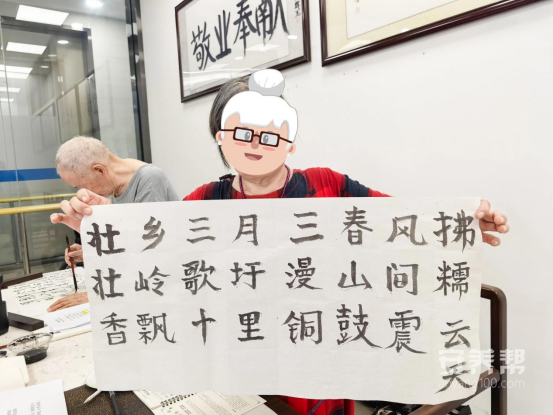 敬业奉献
壮乡三月三春风拂
壮岭歌圩漫山间糯
香飘十里铜鼓震云
天
安养帮